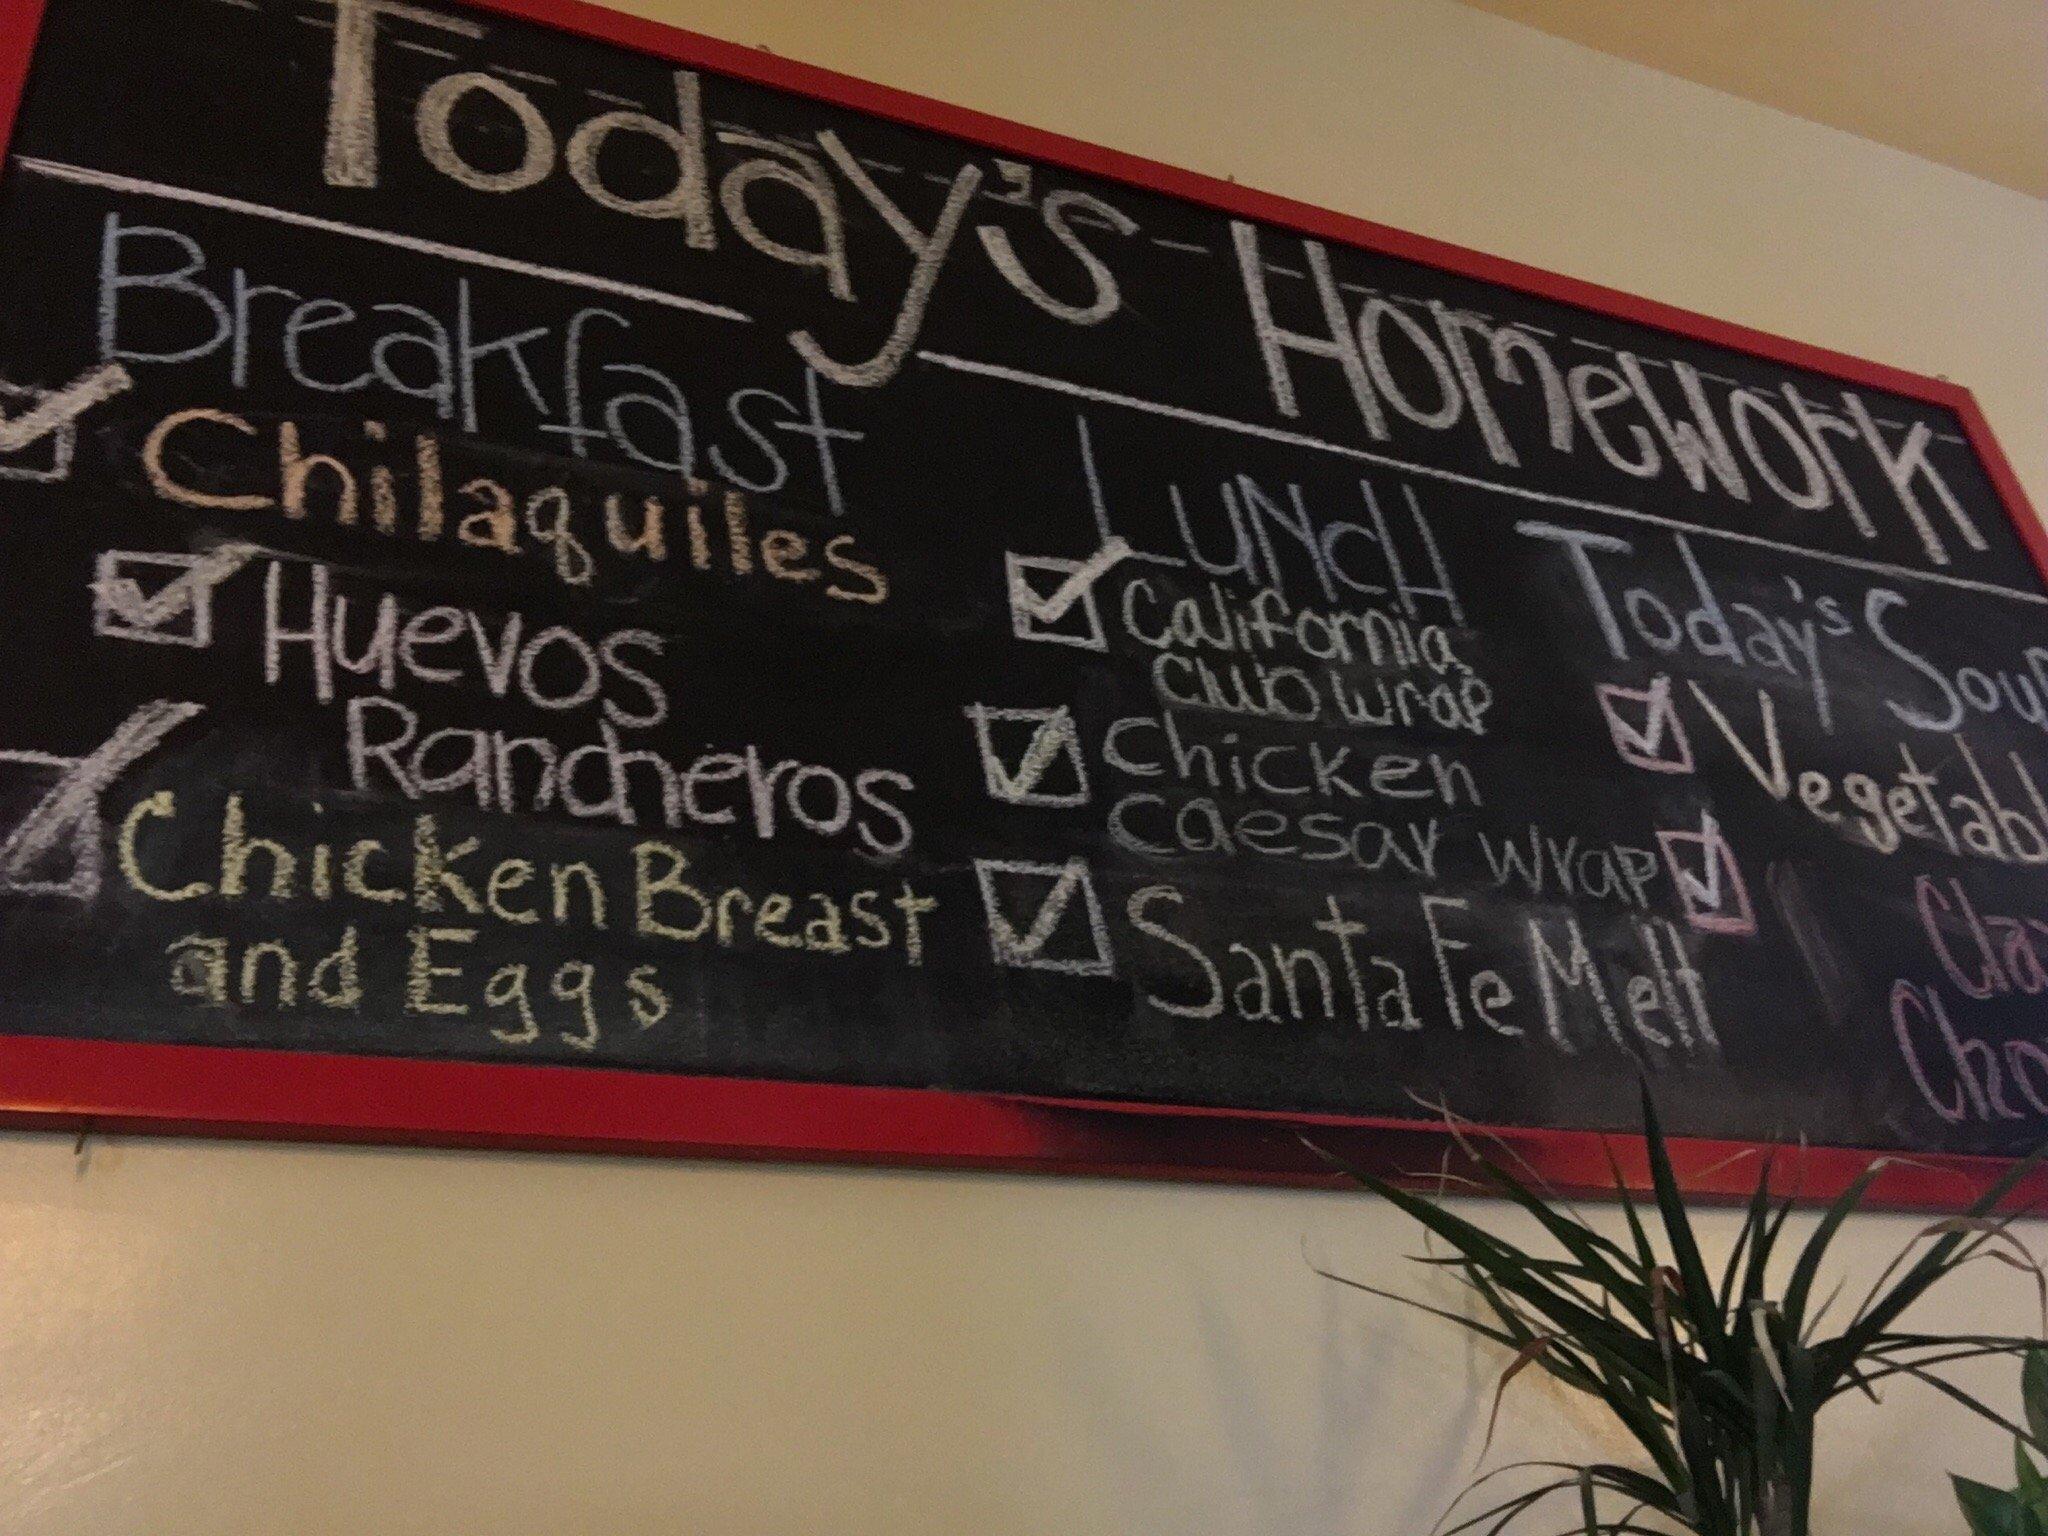 Today's Homework
Breakfast
Chilaquiles
Huevos
Rancheros
Chicken Breast
and Eggs
LUNCH
California
Club Wrap
Chicken
Caesar Wrap
Santa Fe Melt
Today's Soup
Vegetabl
Cla
Cho